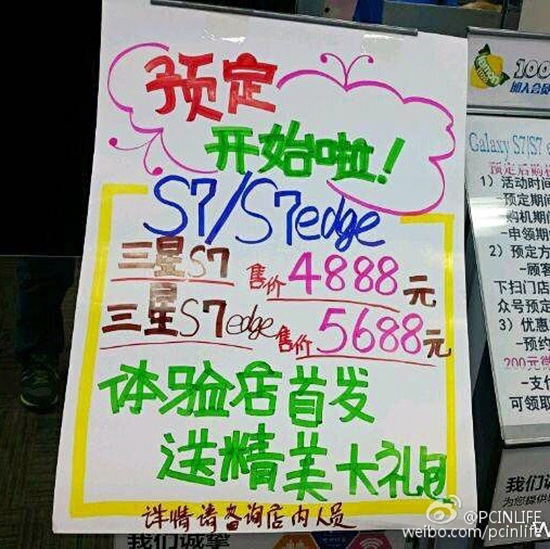 预定
开始啦!
S7/S7edge
三星S7 售价4888元
三星S7edge 售价5688元
体验店首发
送精美大礼包
详情请咨询店内人员
100
加入会员
Galaxy S7/S7 e
预定后购机
1) 活动时间
-预定期间
-购机期间
-申领期
2) 预定方
-顾客
下扫门店
众号预定
3) 优惠
-预约
200元
-支付
可领取
我们诚
为您提供
我们诚挚
@PCINLIFE
weibo.com/pcinlife